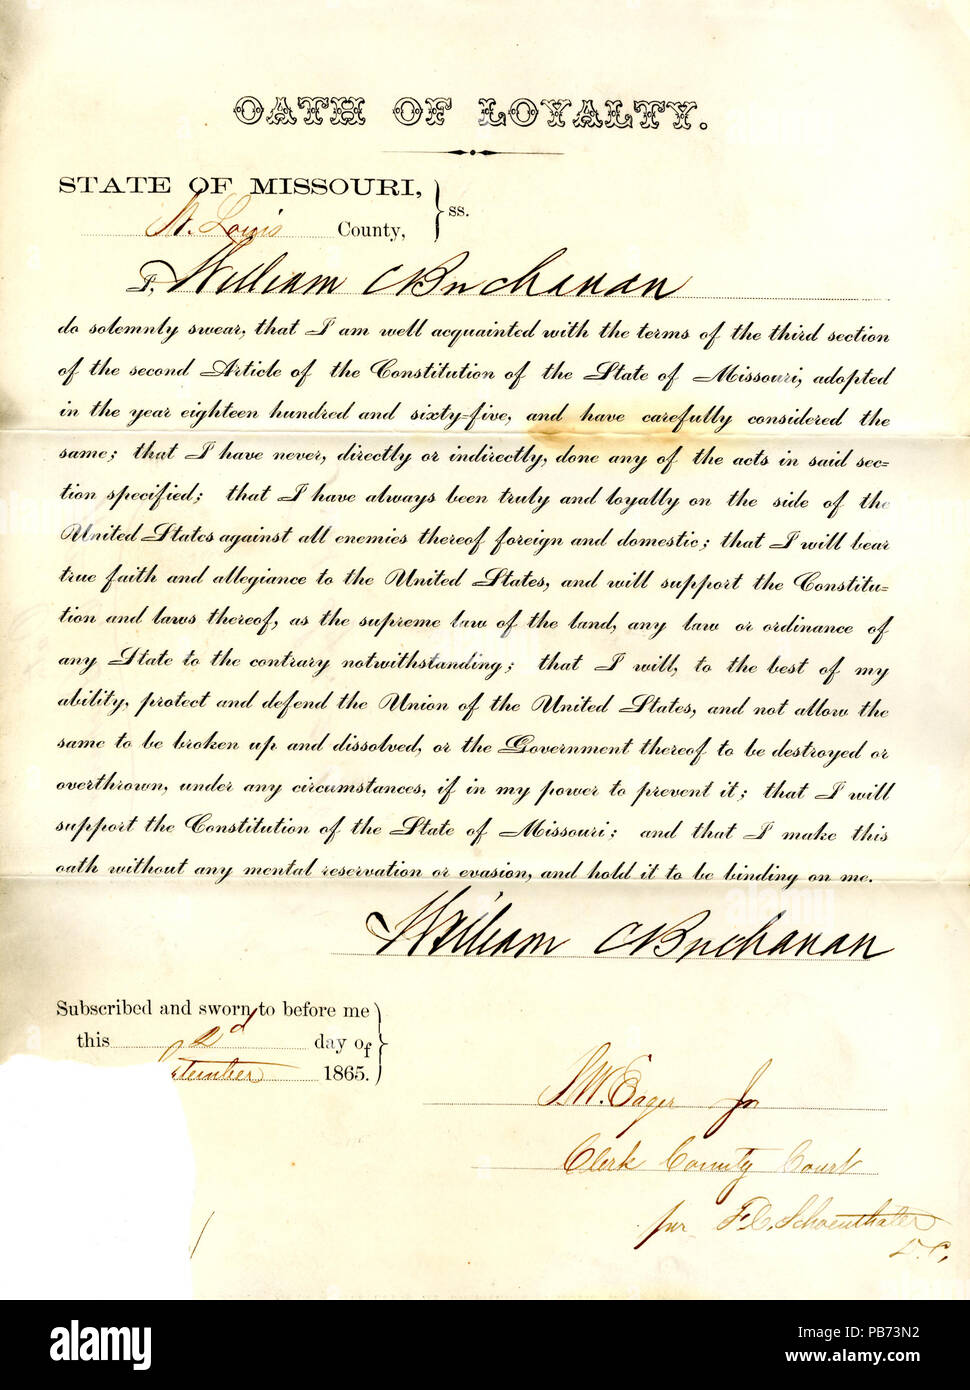 OATH OF LOYALTY.
STATE OF MISSOURI,
ss.
St. Louis County,
I, William Buchanan
do solemnly swear, that I am well acquainted with the terms of the third section
of the second Article of the Constitution of the State of Missouri, adopted
in the year eighteen hundred and sixty-five, and have carefully considered the
same; that I have never, directly or indirectly, done any of the acts in said sec-
tion specified; that I have always been truly and loyally on the side of the
United States against all enemies thereof foreign and domestic; that I will bear
true faith and allegiance to the United States, and will support the Constitu-
tion and laws thereof, as the supreme law of the land, any law or ordinance of
any State to the contrary notwithstanding; that I will, to the best of my
ability, protect and defend the Union of the United States, and not allow the
same to be broken up and dissolved, or the Government thereof to be destroyed or
overthrown, under any circumstances, if in my power to prevent it; that I will
support the Constitution of the State of Missouri; and that I make this
oath without any mental reservation or evasion, and hold it to be binding on me.
William Buchanan
Subscribed and sworn to before me
this 2d day of
tember 1865.
S.W. Eager Jr
Clerk County Court
per F.C. Schoenthaler
D.C.
alamy
Image ID: PB73N2
www.alamy.com